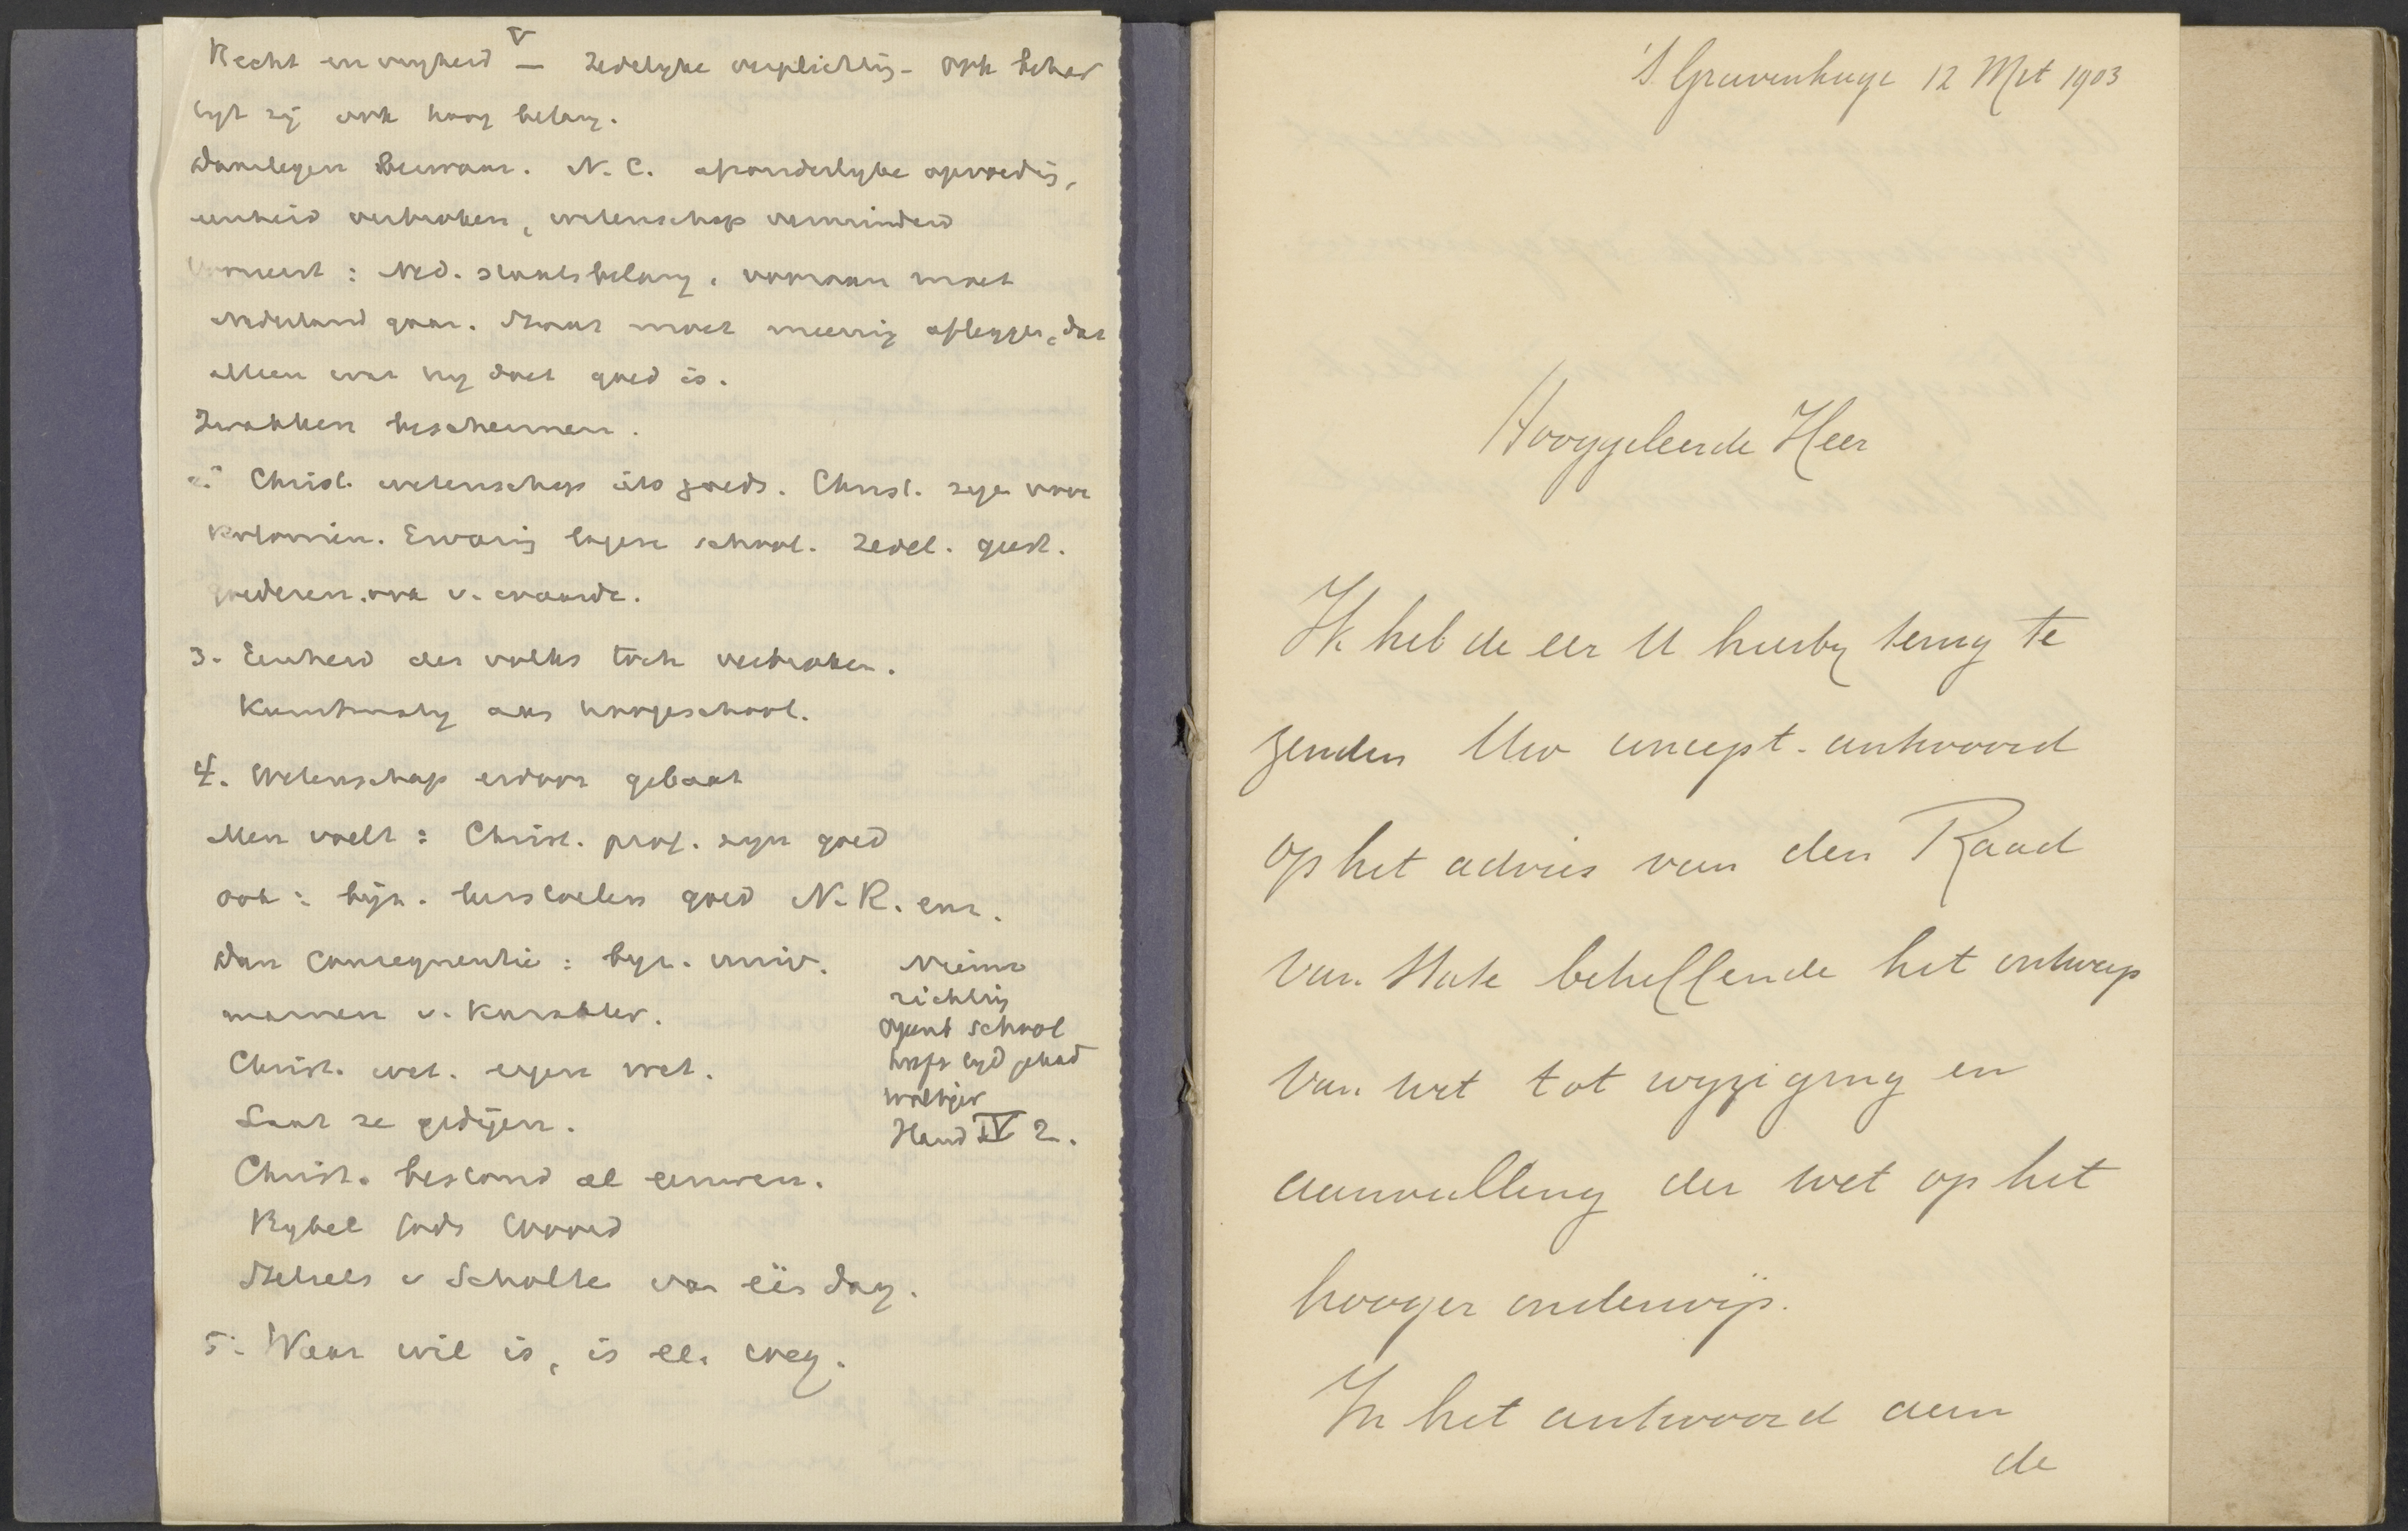 V
Recht en vryheid — zedelyke verplichtig - ook behar
tigt zij ook hoog belang.
Daartegen Bezwaar. N. C. afzonderlyke opvoedig,
eenheid verbroken, wetenschap verminderd
Vooreerst: Ned. staatsbelang. vooraan moet
Nederland gaan. Staat moet meenig afleggen, dat
alleen wat hy doet goed is.
Zwakken beschermen.
2. Christ. wetenschap iets goeds. Christ. zyn voor
Koloniën. Ervarig lagere school. Zedel. geest.
goederen ook v. waarde.
3. Eenheid des volks toch verbroken.
Kunstmatig aan hoogeschool.
4. Wetenschap erdoor gebaat
Men voelt: Christ. prof. zyn goed
ook: bijz. leerstoelen goed N. R. enz.
Dan consequentie: byz. univ.
mannen v. karakter.
Christ. wet. eigen wet.
Laat ze gedijen.
Christ. bestond al eeuwen.
Bybel Gods Woord
Stelsels v Scholte van één dag.
5. Waar wil is, is ee. weg.
Nieuwe
richtig
openb school
heeft tyd gehad
Woltjer
Hand IV 2.
'S Gravenhage 12 Mrt 1903
Hooggeleerde Heer
Ik heb de eer U hierby terug te
zenden Uw concept-antwoord
op het advies van den Raad
van State betreffende het ontwerp
van wet tot wyziging en
aanvulling der wet op het
hooger onderwijs.
In het antwoord aan
de